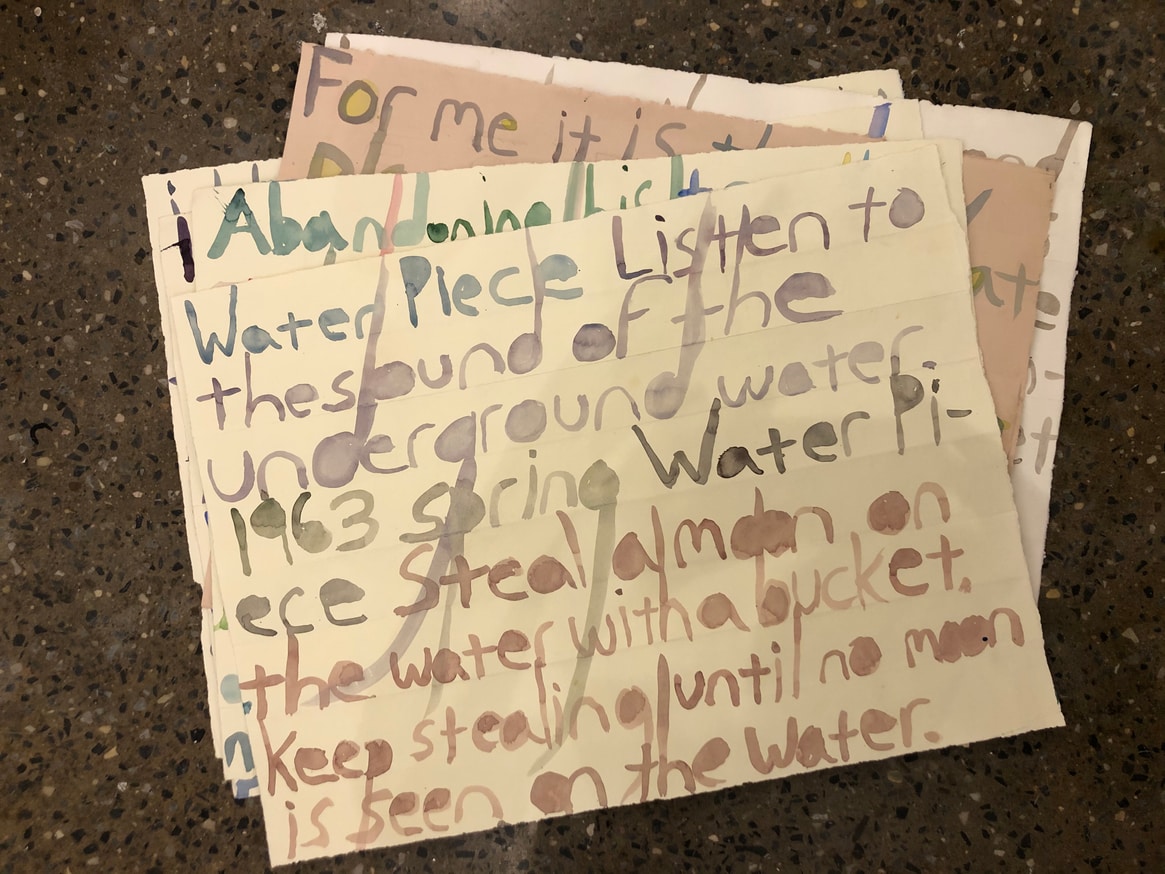 For me it is
Abandoning
Water Piece Listen to
the sound of the
underground water.
1963 spring Water Pi-
ece Steal a moon on
the water with a bucket.
Keep stealing until no moon
is seen on the water.